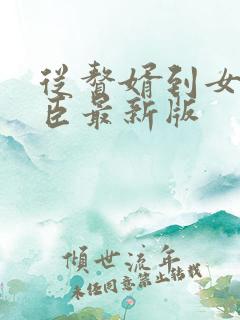 从赘婿到女
臣最新版
倾世流年
未经同意禁止转载